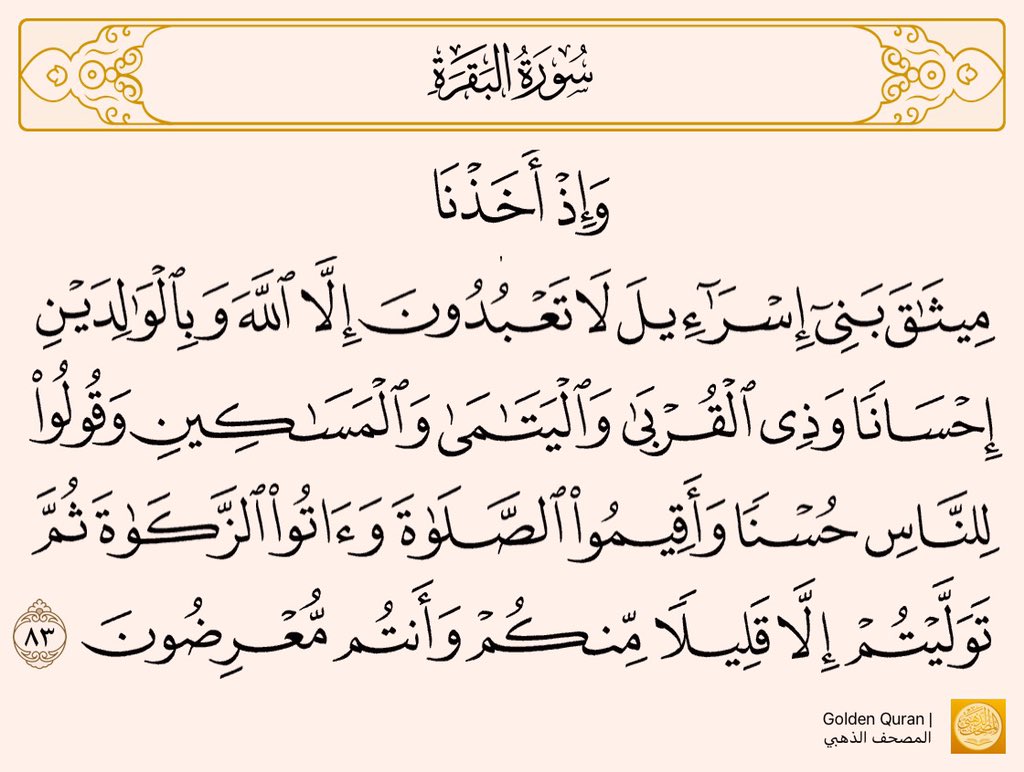 سُورَةُ البَقَرَةِ
وَإِذۡ أَخَذۡنَا
مِيثَٰقَ بَنِيٓ إِسۡرَٰٓءِيلَ لَا تَعۡبُدُونَ إِلَّا ٱللَّهَ وَبِٱلۡوَٰلِدَيۡنِ
إِحۡسَانٗا وَذِي ٱلۡقُرۡبَىٰ وَٱلۡيَتَٰمَىٰ وَٱلۡمَسَٰكِينِ وَقُولُواْ
لِلنَّاسِ حُسۡنٗا وَأَقِيمُواْ ٱلصَّلَوٰةَ وَءَاتُواْ ٱلزَّكَوٰةَ ثُمَّ
تَوَلَّيۡتُمۡ إِلَّا قَلِيلٗا مِّنكُمۡ وَأَنتُم مُّعۡرِضُونَ ٨٣
Golden Quran |
المصحف الذهبي